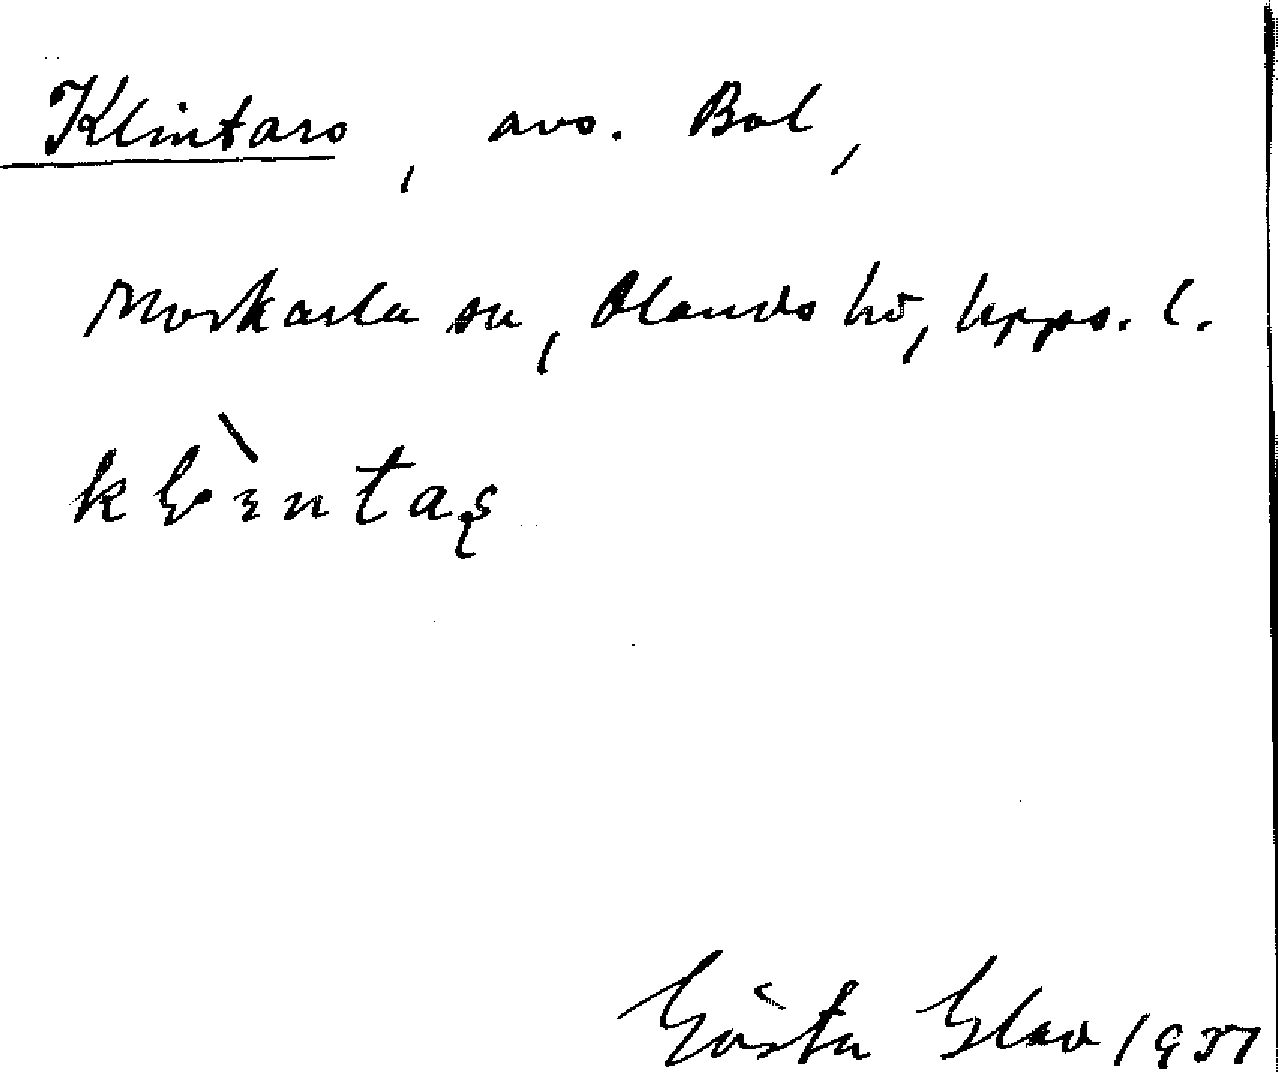 Klintars, avs. Bol,
Morkarla sn, Olands hd, Upps. l.
Gösta Elav 1951